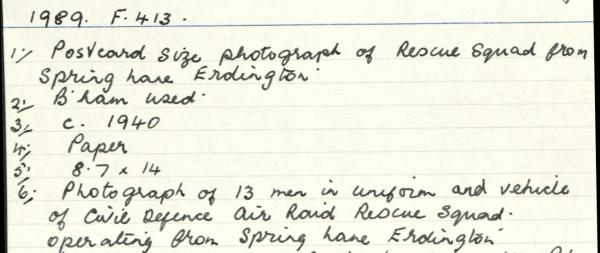 1989. F. 413.
1; Postcard size photograph of Rescue Squad from
Spring Lane Erdington.
2; B'ham used.
3; c. 1940
4; Paper
5; 8.7 x 14
6; Photograph of 13 men in uniform and vehicle
of Civil Defence Air Raid Rescue Squad.
operating from Spring Lane Erdington.